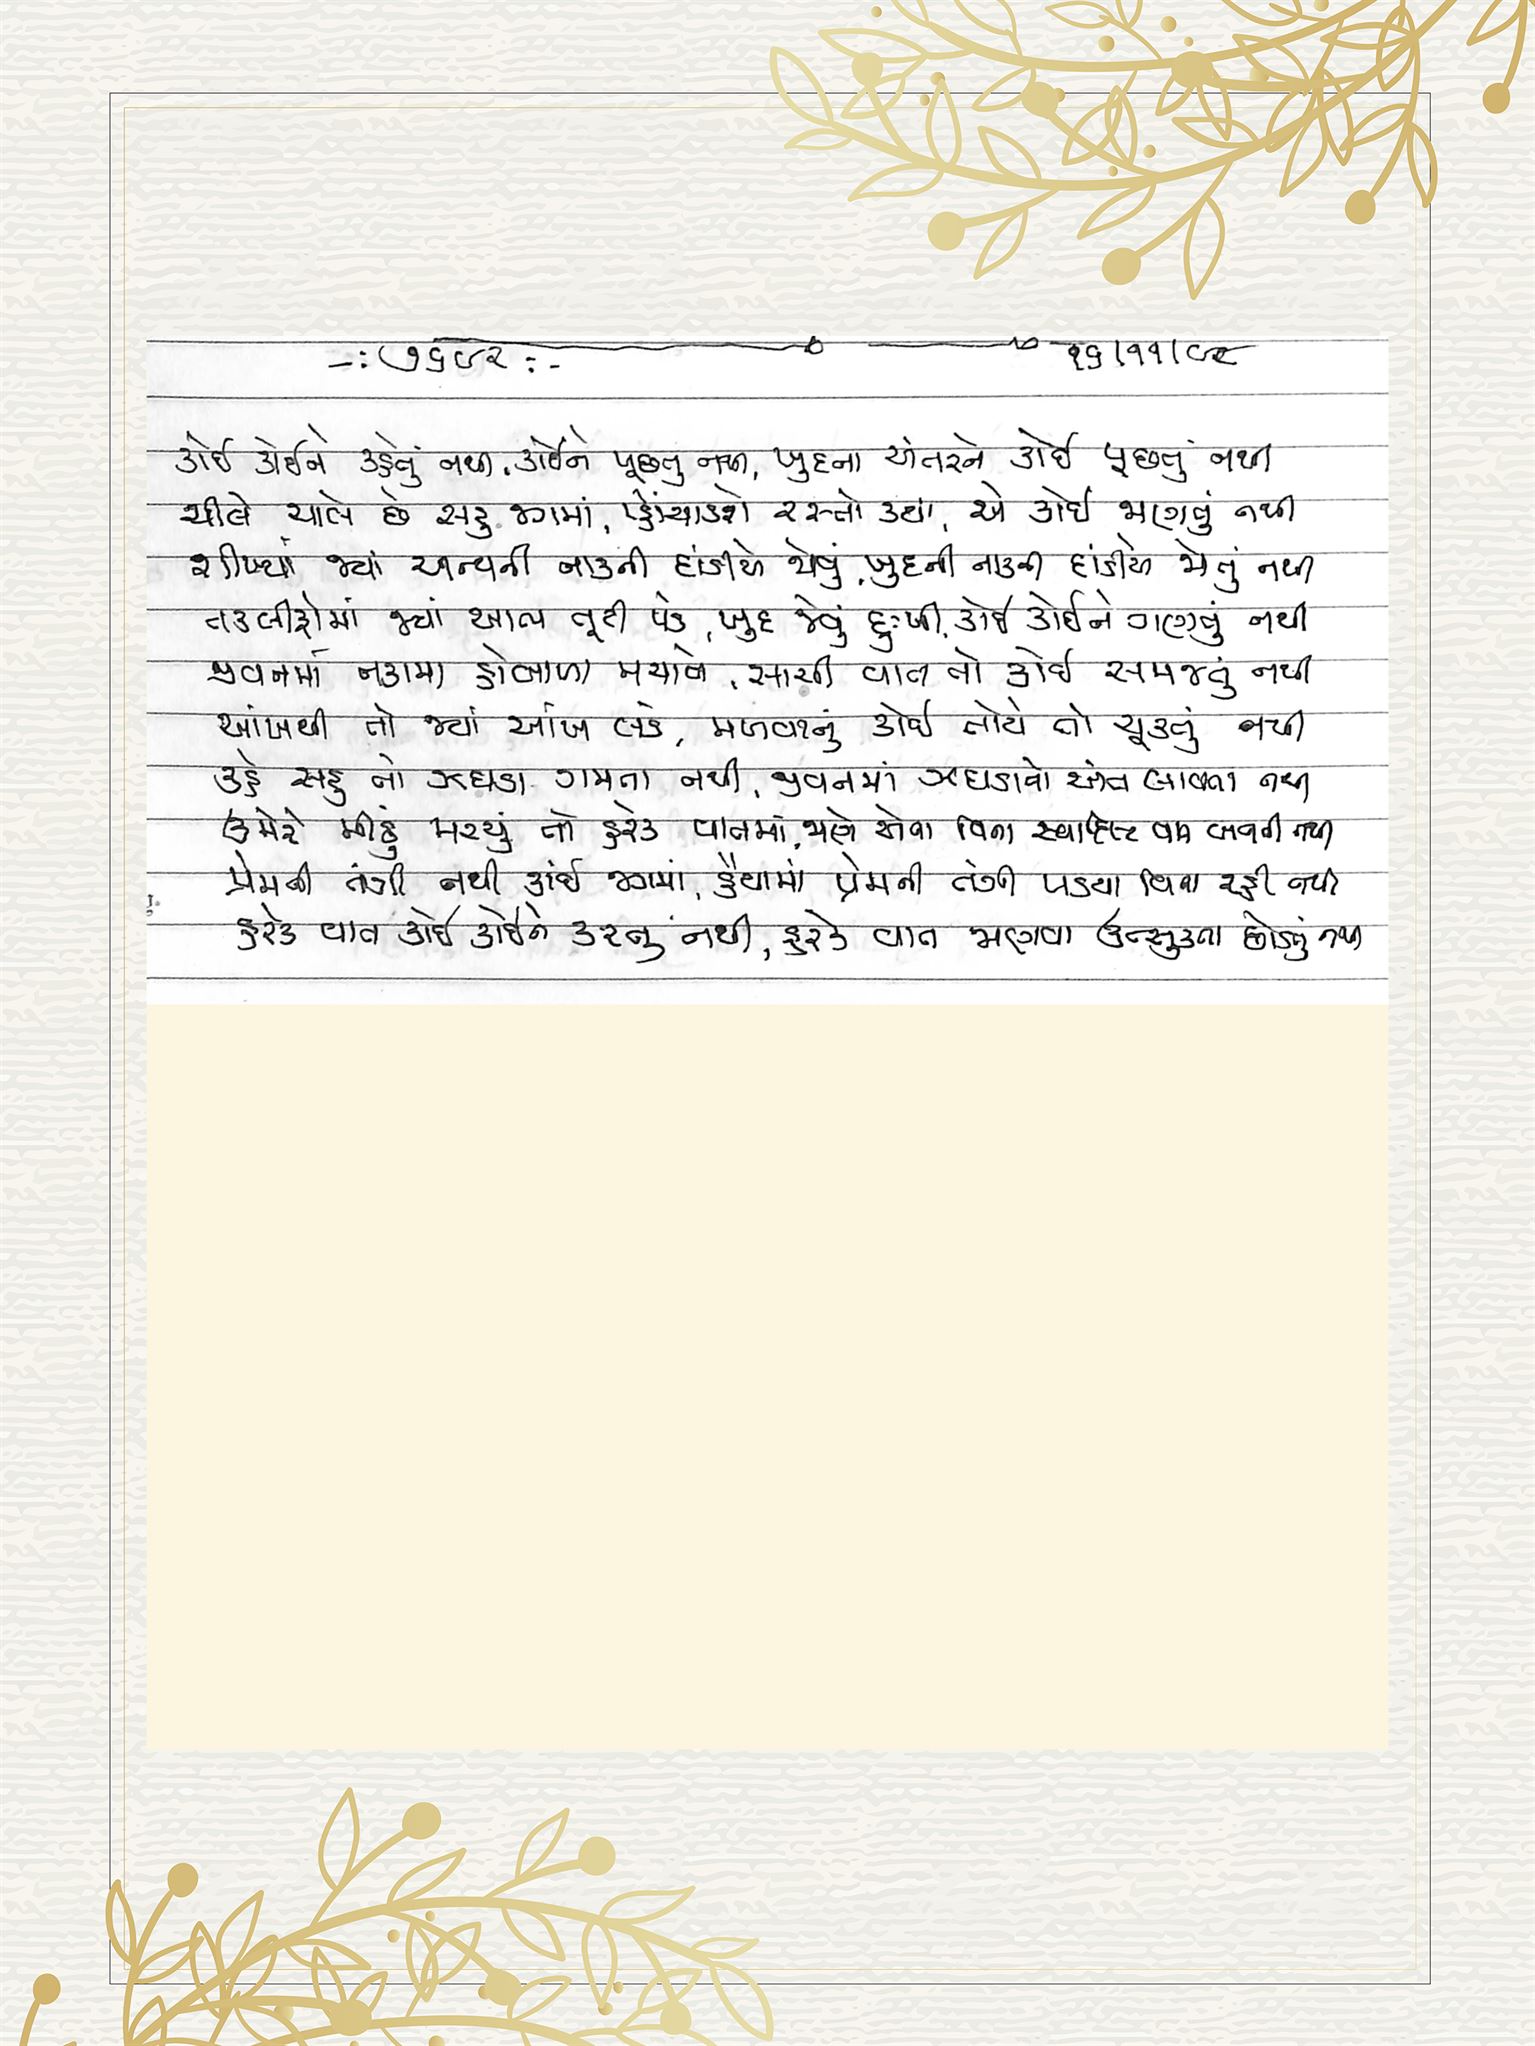 -: ૭૬૯૨ :- ૧૬/૧૧/૯૮
કોઈ કોઈને કહેતું નથી, કોઈને પૂછતું નથી, ખુદના અંતરને કોઈ પૂછતું નથી
ચીલે ચાલે છે સહુ જગમાં, પહોંચાડશે રસ્તો ક્યાં, એ કોઈ જાણતું નથી
શીખ્યાં જ્યાં અન્યની નાકની દાંડીએ જોવું, ખુદની નાકની દાંડીએ જોતું નથી
તકલીફોમાં જ્યાં આભ તૂટી પડે, ખુદ જેવું દુઃખી કોઈ કોઈને ગણતું નથી
જીવનમાં નકામા હોબાળા મચાવે, સાચી વાત તો કોઈ સમજતું નથી
આંખથી તો જ્યાં આંખ લડે, મળવાનું કોઈ તોયે તો ચૂકતું નથી
કહે સહુ તો ઝઘડા ગમતા નથી, જીવનમાં ઝઘડાનો અંત લાવતા નથી
ઉમેરે મીઠું મરચું તો હરેક વાતમાં, જાણે એના વિના વાત બનતી નથી
પ્રેમની તંગી નથી કાંઈ જગમાં, હૈયામાં પ્રેમની તંગી પડયા વિના રહી નથી
હરેક વાત કોઈ કોઈને કરતું નથી, હરેક વાત જાણવા ઉત્સુકતા છોડતું નથી